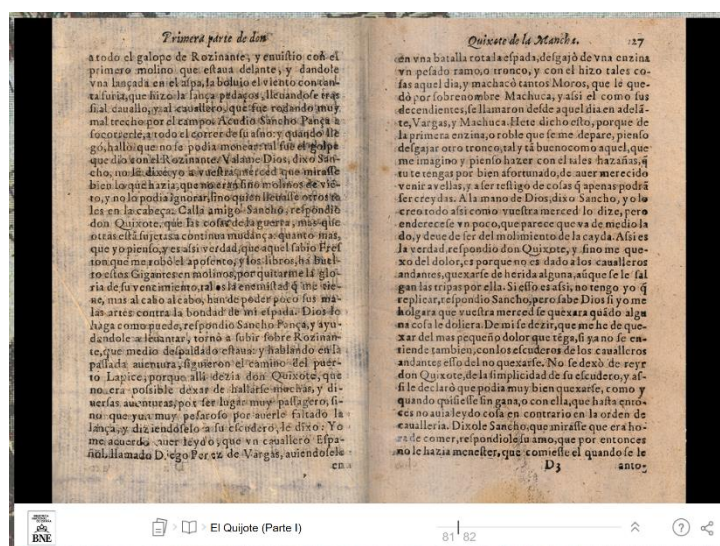 Primera parte de don
a todo el galope de Rozinante, y enuistio con el
primero molino que estaua delante, y dandole
vna lançada en el aspa, la boluio el viento con tan-
ta furia, que hizo la lança pedaços, lleuandose tras
si al cauallo, y al cauallero, que fue rodando muy
mal trecho por el campo. Acudio Sancho Pança a
socorrerle, a todo el correr de su asno: y quando lle
gó, halló que no se podia menear: tal fue el golpe
que dio con el Rozinante. Valame Dios, dixo San-
cho, no le dixe yo a vuestra merced que mirasse
bien lo que hazia, que no eran sino molinos de viē-
to, y no lo podia ignorar, sino quien lleuasse otros ta
les en la cabeça. Calla amigo Sancho, respondio
don Quixote, que las cosas de la guerra, mas que
otras está sujetas a continua mudança: quanto mas,
que yo pienso, y es assi verdad, que aquel sabio Fres
ton que me robó el aposento, y los libros, ha buel-
to estos Gigantes en molinos, por quitarme la glo-
ria de su vencimiento, tal es la enemistad q̃ me tie-
ne, mas al cabo al cabo, han de poder poco sus ma-
las artes contra la bondad de mi espada. Dios lo
haga como puede, respondio Sancho Pança, y ayu-
dandole a leuantar, tornó a subir sobre Rozinan-
te, que medio despaldado estaua: y hablando en la
passada auentura, siguieron el camino del puer-
to Lapice, porque alli dezia don Quixote, que
no era possible dexar de hallarse muchas, y di-
uersas auenturas, por ser lugar muy passagero, si-
no que yua muy pesaroso por auerle faltado la
lança, y diziendoselo a su escudero, le dixo: Yo
me acuerdo auer leydo, que vn cauallero Espa-
ñol, llamado Diego Perez de Vargas, auiendosele
en
Quixote de la Mancha. 127
en vna batalla roto la espada, desgajó de vna enzina
vn pesado ramo, o tronco, y con el hizo tales co-
sas aquel dia, y machacò tantos Moros, que le que-
dò por sobrenombre Machuca, y assi el como sus
decendientes, se llamaron desde aquel dia en adelā-
te, Vargas, y Machuca. Hete dicho esto, porque de
la primera enzina, o roble que se me depare, pienso
desgajar otro tronco, tal y tā bueno como aquel, que
me imagino y pienso hazer con el tales hazañas, q̃
tu te tengas por bien afortunado, de auer merecido
venir a vellas, y a ser testigo de cosas q̃ apenas podrā
ser creydas. A la mano de Dios, dixo Sancho, yo lo
creo todo assi como vuestra merced lo dize, pero
enderecese vn poco, que parece que va de medio la
do, y deue de ser del molimiento de la cayda. Assi es
la verdad, respondio don Quixote, y sino me que-
xo del dolor, es porque no es dado a los caualleros
andantes, quexarse de herida alguna, aūque se le sal
gan las tripas por ella. Si esso es assi, no tengo yo q̃
replicar, respondio Sancho, pero sabe Dios si yo me
holgara que vuestra merced se quexara quādo algu
na cosa le doliera. De mi se dezir, que me he de que-
xar del mas pequeño dolor que tēga, si ya no se en-
tiende tambien, con los escuderos de los caualleros
andantes esso del no quexarse. No se dexó de reyr
don Quixote, de la simplicidad de su escudero, y as-
si le declaró que podia muy bien quexarse, como y
quando quisiesse sin gana, o con ella, que hasta ento-
ces no auia leydo cosa en contrario en la orden de
caualleria. Dixole Sancho, que mirasse que era ho-
ra de comer, respondiole su amo, que por entonces
no le hazia menester, que comiesse el quando se le
D3 anto-
BNE
El Quijote (Parte I)
81 82
?